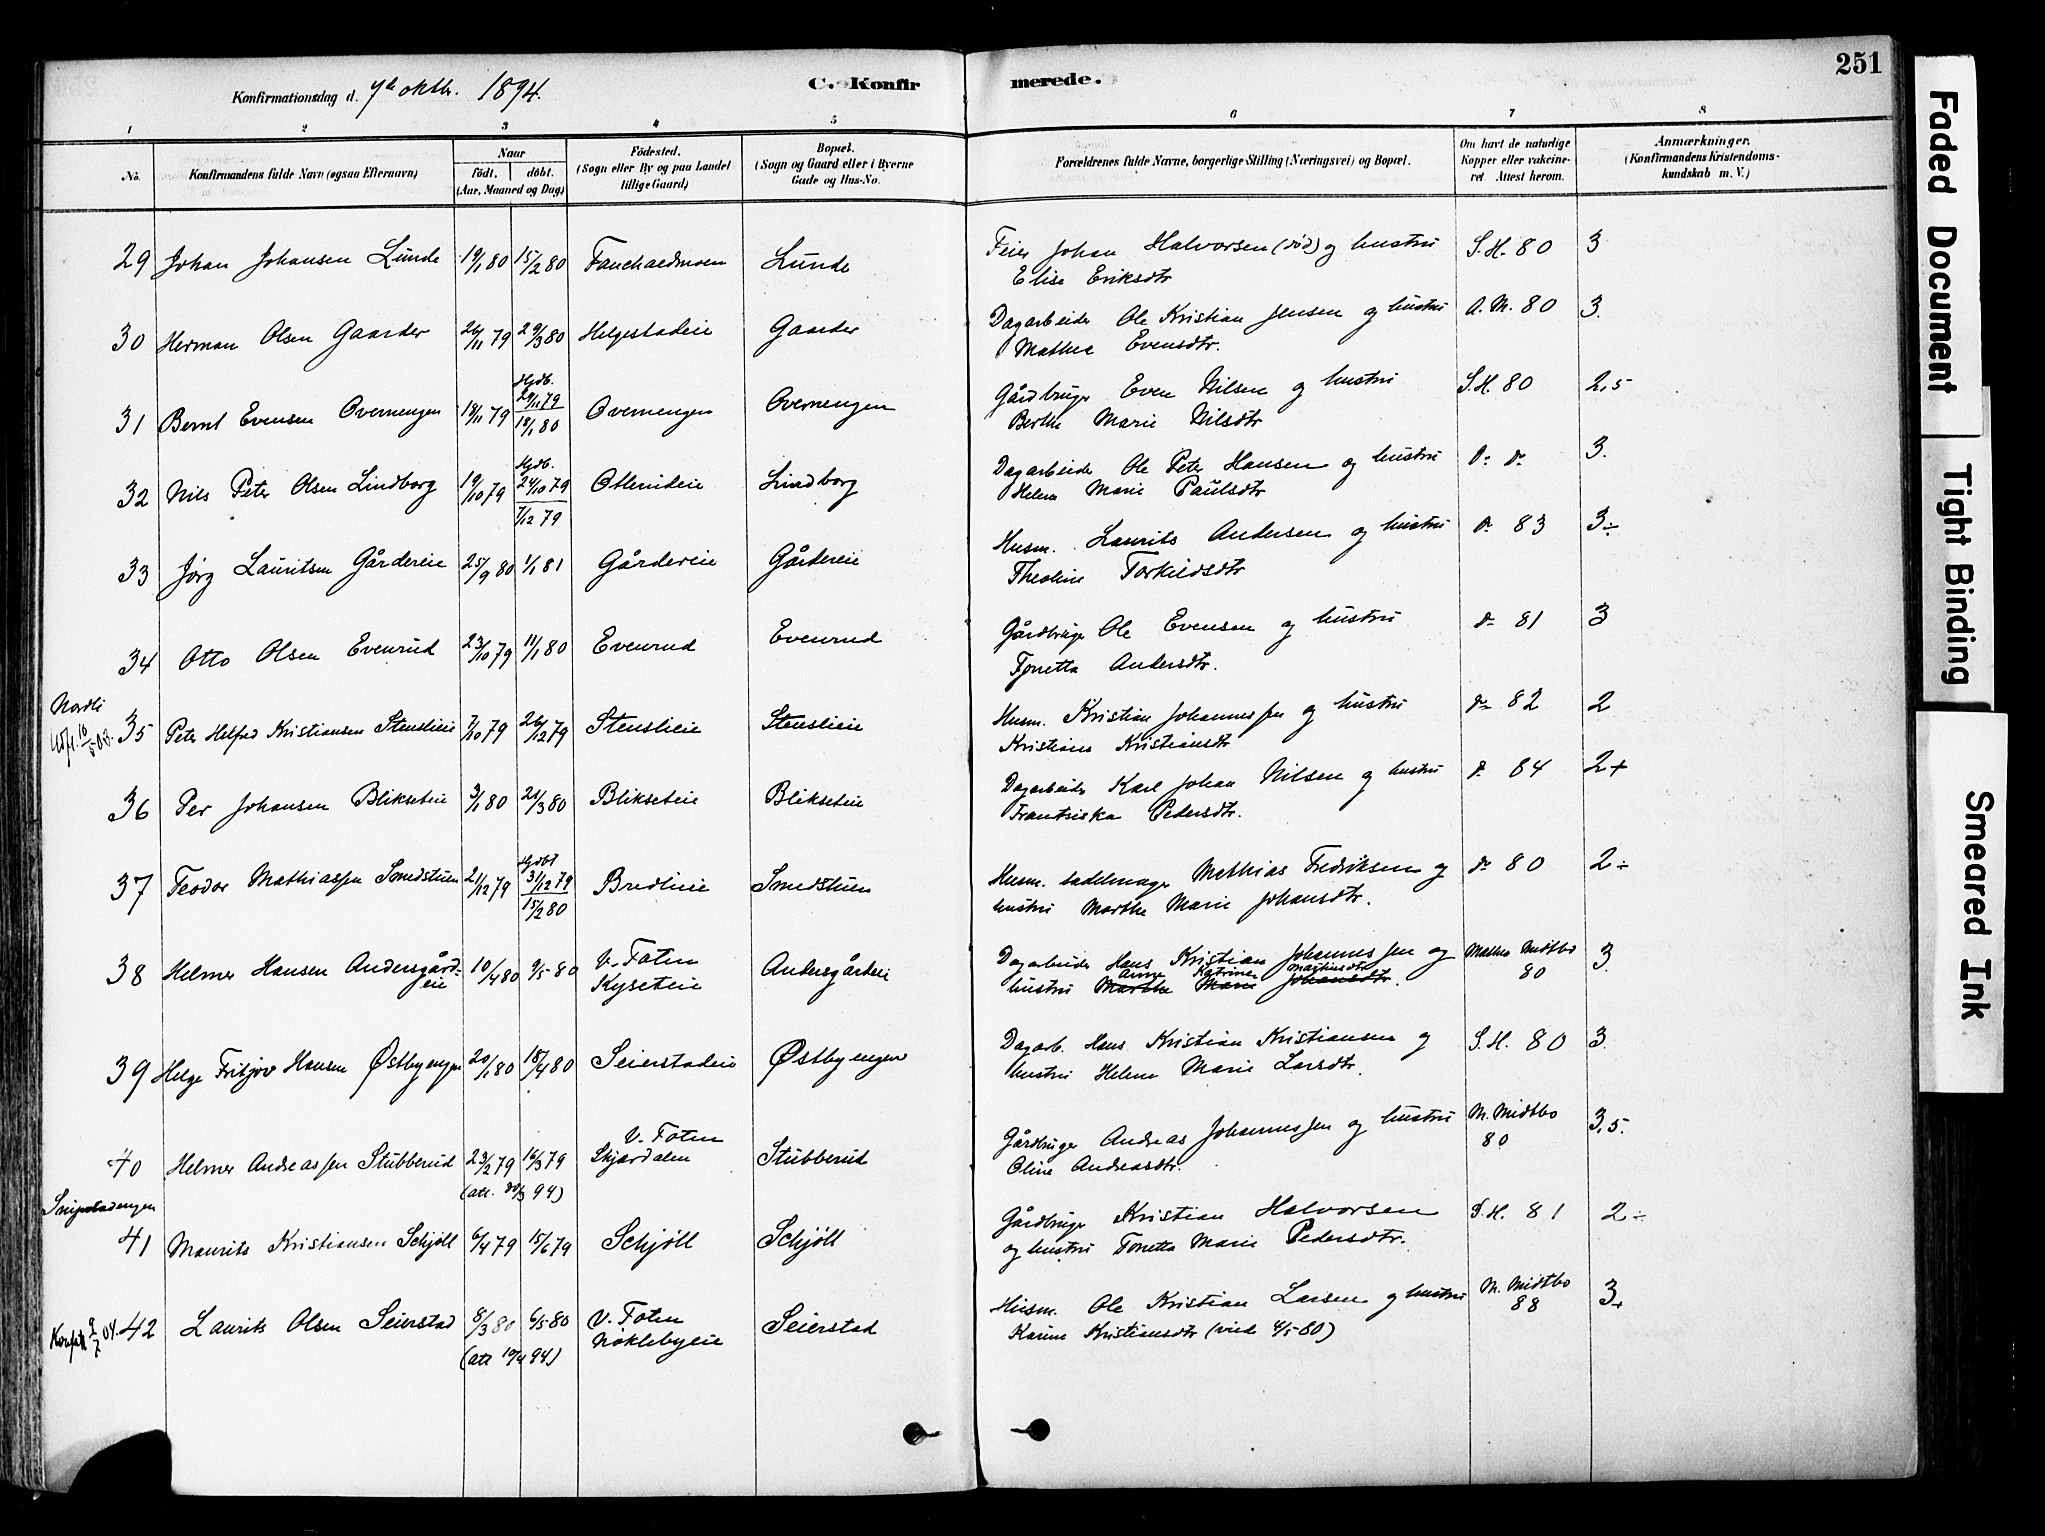 Konfirmationsdag d. 7de oktbr. 1894.
C. Konfirmerede.
251
1 2 3 4 5 6 7 8
No.
Konfirmandens fulde Navn (ogsaa Efternavn)
Naar
født. døbt.
(Aar, Maaned og Dag)
Födested.
(Sogn eller By og paa Landet
tillige Gaard)
Bopæl.
(Sogn og Gaard eller i Byerne
Gade og Hus-No.
Forældrenes fulde Navne, borgerlige Stilling (Næringsvei) og Bopæl.
Om havt de naturlige
Kopper eller vakcine-
ret Attest herom.
Anmærkninger.
(Konfirmandens Kristendoms-
kundskab m. V.)
29 Johan Johansen Lunde 19/1 80 15/2 80 Fauchaldmoen Lunde Feier Johan Halvorsen (død) og hustru S.H. 80 3
Elise Eriksdtr
30 Herman Olsen Gaarder 26/11 79 29/3 80 Helgestadeie Gaarder Dagarbeider Ole Kristian Jensen og hustru A.M. 80 3.
Mathea Evensdtr.
31 Bernt Evensen Overnengen 18/11 79 Hjdb. 29/11 79 18/1 80 Overnengen Overnengen Gårdbruger Even Nilsen og hustru S.H. 80 2,5
Berthe Marie Nilsdtr
32 Nils Peter Olsen Lindborg 19/10 79 Hjdb. 24/10 79 7/12 79 Ottenideie Lindborg Dagarbeider Ole Peter Hansen og hustru Do do 3.
Helene Marie Paulsdtr
33 Jörg Lauritsen Gårdereie 25/9 80 1/1 81 Gårdereie Gårdereie Husm. Laurits Andersen og hustru do 83 3÷
Theoline Torkildsdtr
34 Otto Olsen Evenrud 23/10 79 11/1 80 Evenrud Evenrud Gårdbruger Ole Evensen og hustru do 81 3
Tonetta Andersdtr.
Nordli
35 Peter Helfred Kristiansen Stenslieie 7/10 79 26/12 79 Stenslieie Stenslieie Husm. Kristian Johannessen og hustru do 82 2
Kristiane Kristiansdtr
36 Per Johansen Blikseteie 3/1 80 21/3 80 Blikseteie Blikseteie Dagarbeider Karl Johan Nilsen og hustru do 84 2+
Frantsiska Pedersdtr.
37 Teodor Mathiassen Smedstuen 21/12 79 Hjdbt 31/12 79 15/2 80 Bredlieie Smedstuen Husm. sadelmager Mathias Fredriksen og do 80 2÷
hustru Marthe Marie Johansdtr.
38 Helmer Hansen Andersgård-
eie 10/4 80 9/5 80 V. Toten
Kyseteie Andersgårdeie Dagarbeider Hans Kristian Johannessen og Mathea Midtbo
80 3.
Anne Katrine Mathisdtr
hustru Marthe Marie Johansdtr.
39 Helge Fritjov Hansen Østbyengen 20/1 80 18/4 80 Seierstadeie Østbyengen Dagarb. Hans Kristian Kristiansen og S.H. 80 3.
hustru Helene Marie Larsdtr.
40 Helmer Andreassen Stubberud 23/2 79 16/3 79 V. Toten
Skjærdalen Stubberud Gårdbruger Andreas Johannessen og hustru M. Midtbo
80 3,5.
(att. 30/3 94) Oline Andreasdtr.
41 Maurits Kristiansen Schjöll 6/4 79 15/6 79 Schjöll Schjöll Gårdbruger Kristian Halvorsen S.H. 81 2÷
og hustru Tonetta Marie Pedersdtr.
42 Laurits Olsen Seierstad 8/3 80 6/5 80 V. Toten
Nöklebyeie Seierstad Husm. Ole Kristian Larsen og hustru M. Midtbo
88 3+
(att 19/4 94) Karine Kristiansdtr (viet 4/5 80)
Faded Document
Tight Binding
Smeared Ink